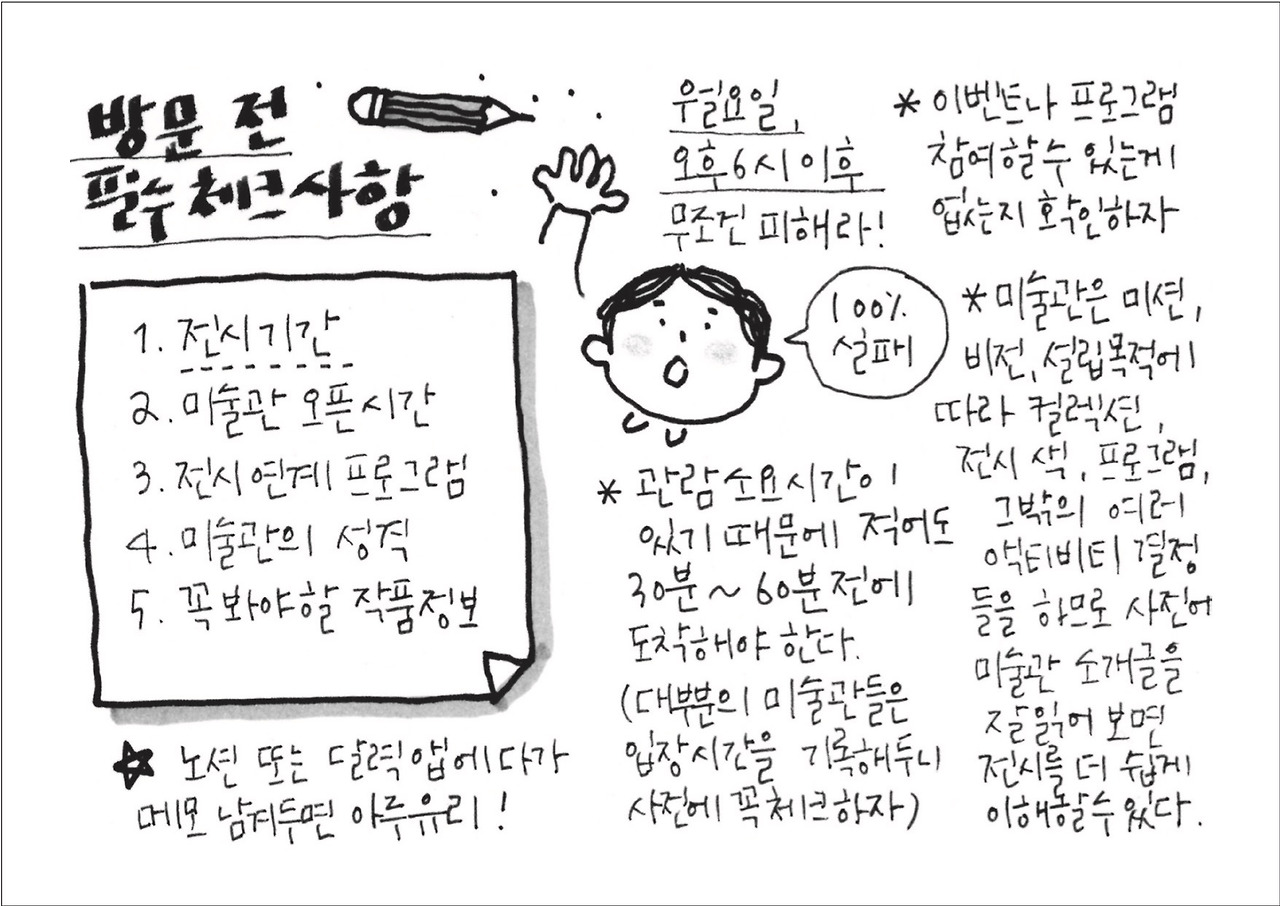 방문 전
필수 체크사항
1. 전시기간
2. 미술관 오픈시간
3. 전시연계 프로그램
4. 미술관의 성격
5. 꼭봐야할 작품정보
노션 또는 달력앱에다가
메모 남겨두면 아주유리!
월요일,
오후6시이후
무조건 피해라!
100%
실패
* 관람소요시간이
있기 때문에 적어도
30분~60분전에
도착해야 한다.
(대부분의 미술관들은
입장시간을 기록해두니
사전에 꼭체크하자)
* 이벤트나 프로그램
참여할수 있는게
없는지 확인하자
* 미술관은 미션,
비전, 설립목적에
따라 컬렉션,
전시 색, 프로그램,
그밖의 여러
액티비티 결정
들을 하므로 사전에
미술관 소개글을
잘읽어 보면
전시를 더 쉽게
이해할수있다.